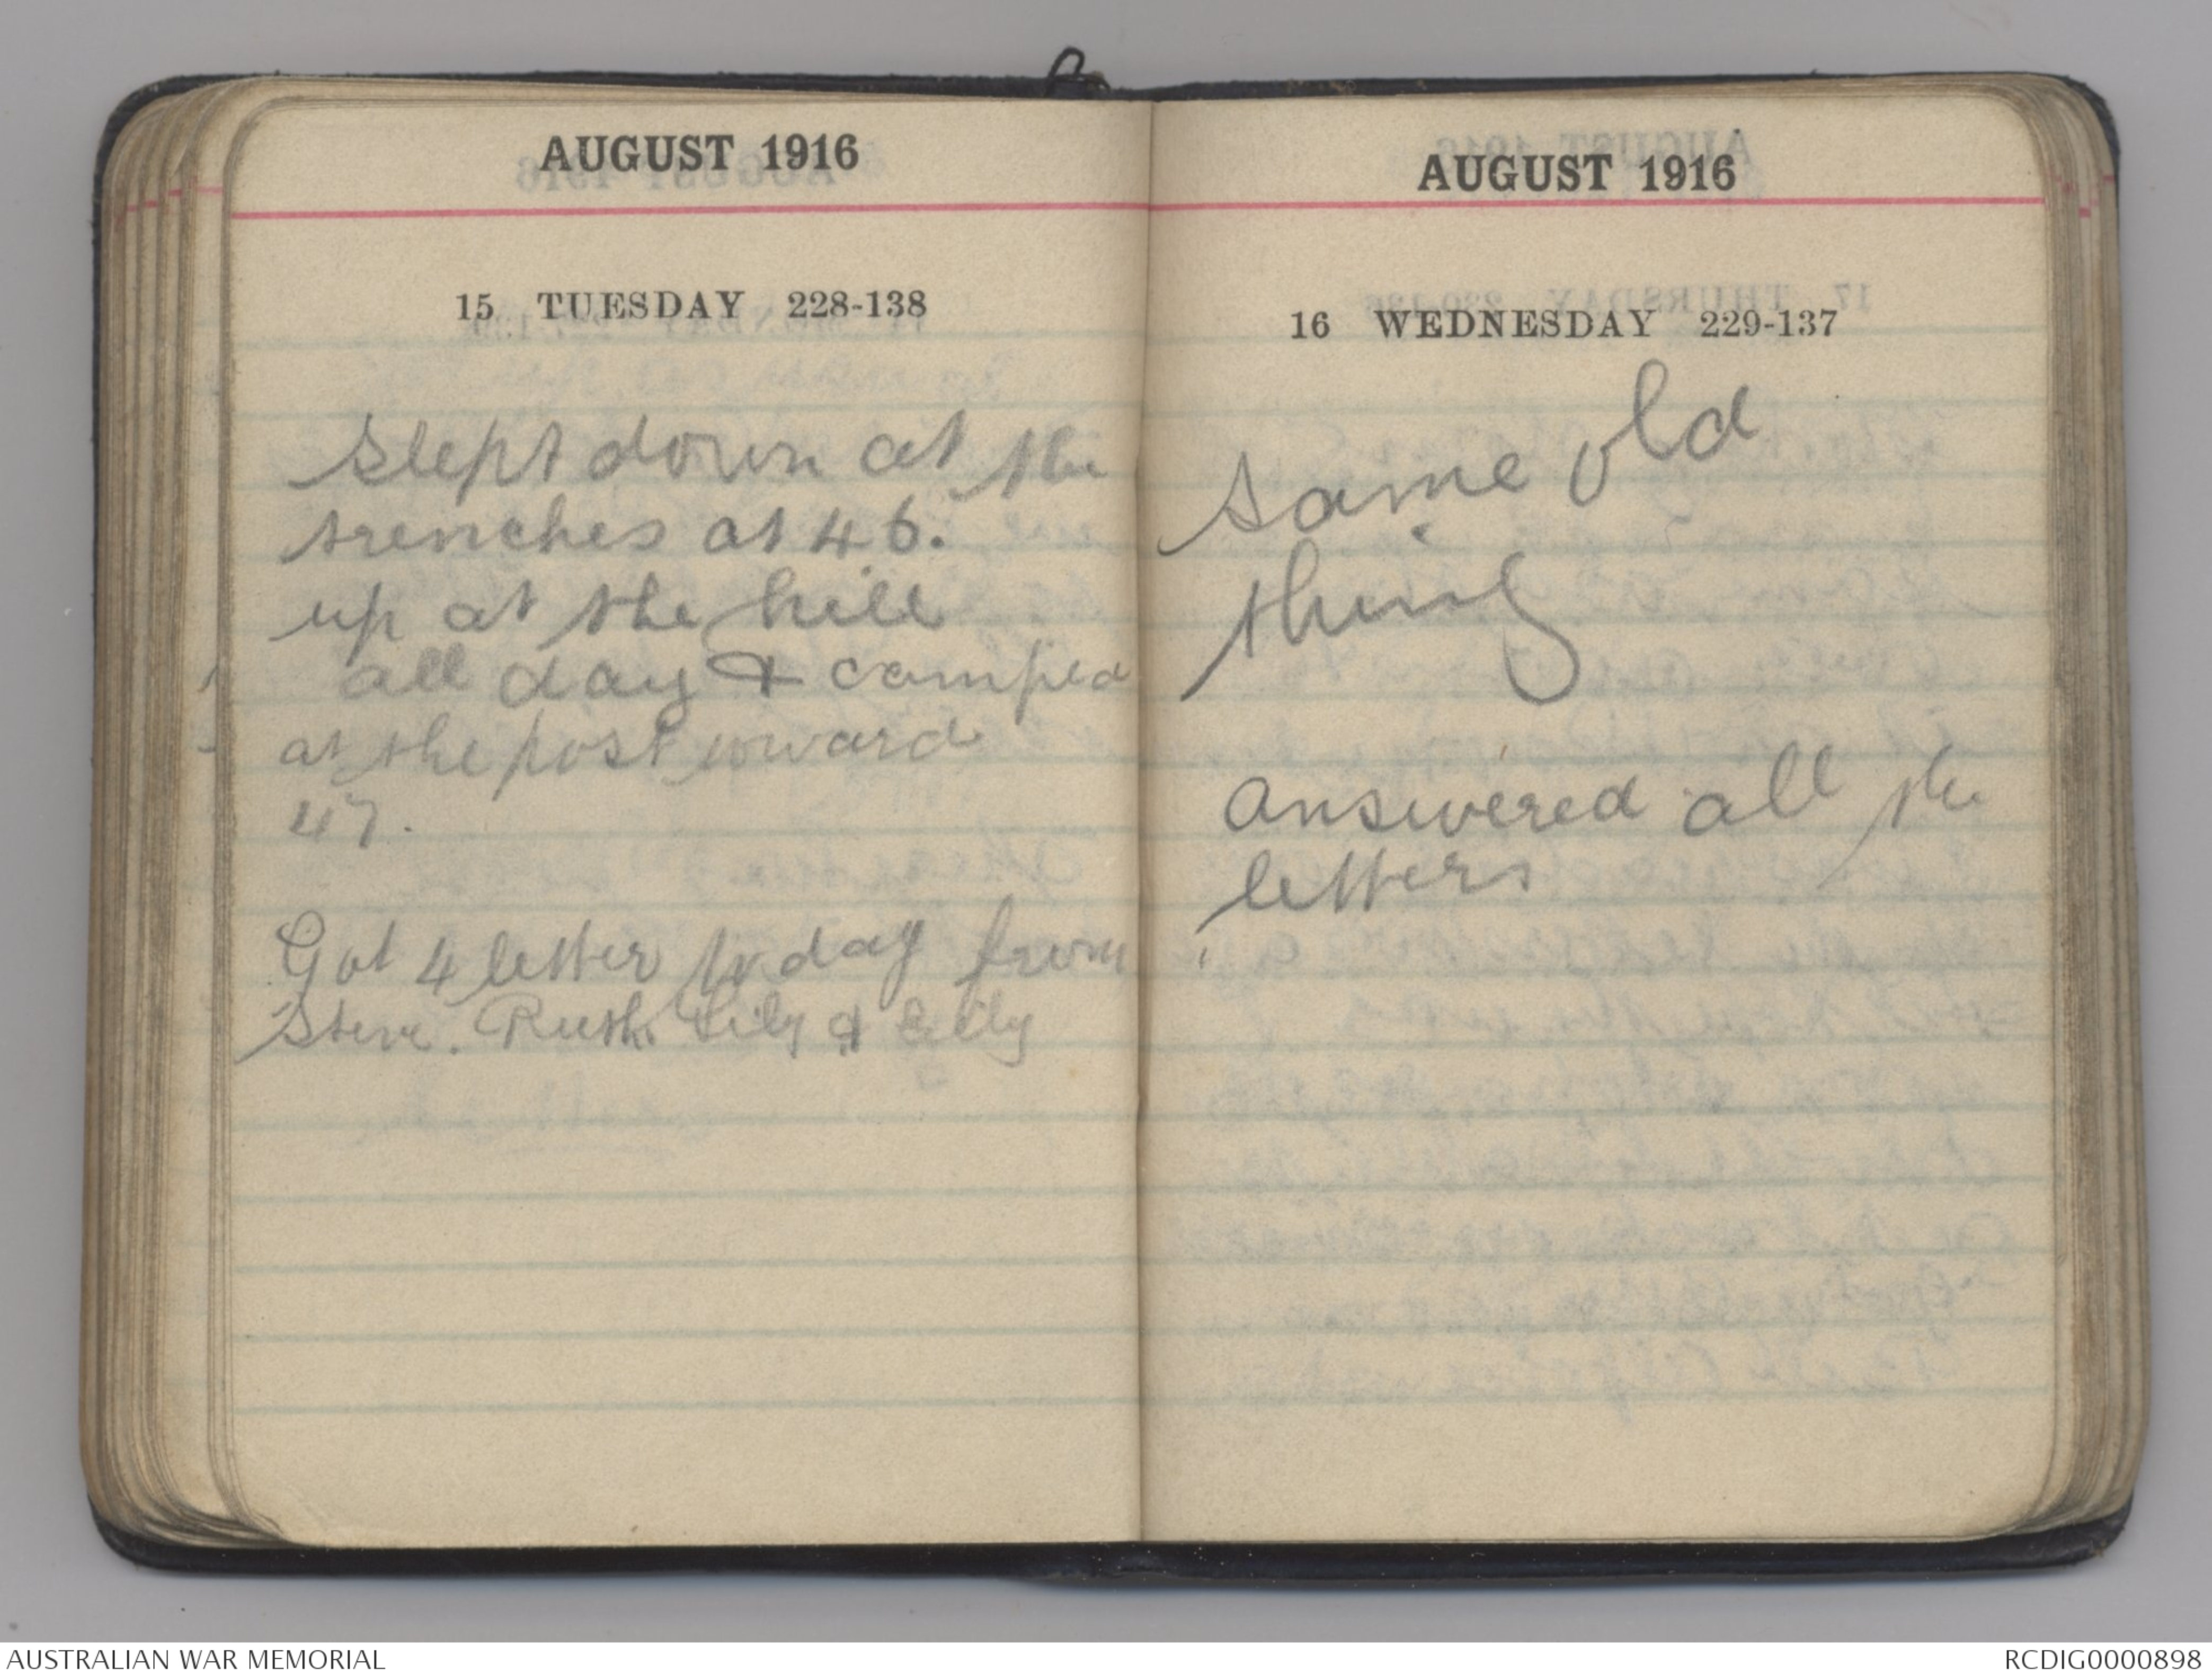 AUGUST 1916
15 TUESDAY 228-138
slept down at the
trenches at 46.
up at the hill
all day & camped
at the post toward
47.
Got 4 letter to day from
Steve. Ruth. Lily &
AUGUST 1916
16 WEDNESDAY 229-137
same old
thing
answered all the
letters
AUSTRALIAN WAR MEMORIAL
RCDIG0000898